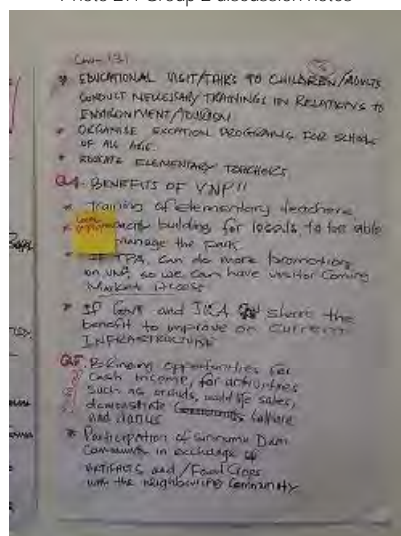 Photo 2.1 Group 2 discussion notes
* EDUCATIONAL VISIT/TALKS TO CHILDREN/ADULTS
CONDUCT NECESSARY TRAININGS IN RELATIONS TO
ENVIRONMENT/TOURISM
* ORGANISE PROGRAMS FOR SCHOOLS
OF ALL AGE.
* EDUCATE ELEMENTARY TEACHERS
BENEFITS OF VNP!!
* Training of elementary teachers
* building for locals to be able
manage the park
* If TPA, can do more promotion
on VNP, so we can have visitor coming
Market Access
* If GOVT and JICA share the
benefit to improve on current
INFRASTRUCTURE
opportunities for
cash income, for activities
such as orchids, wildlife sales,
demonstrate culture
and dances
* Participation of Dam
Community in exchange of
ARTIFACTS and / Food Crops
with the neighbouring Community